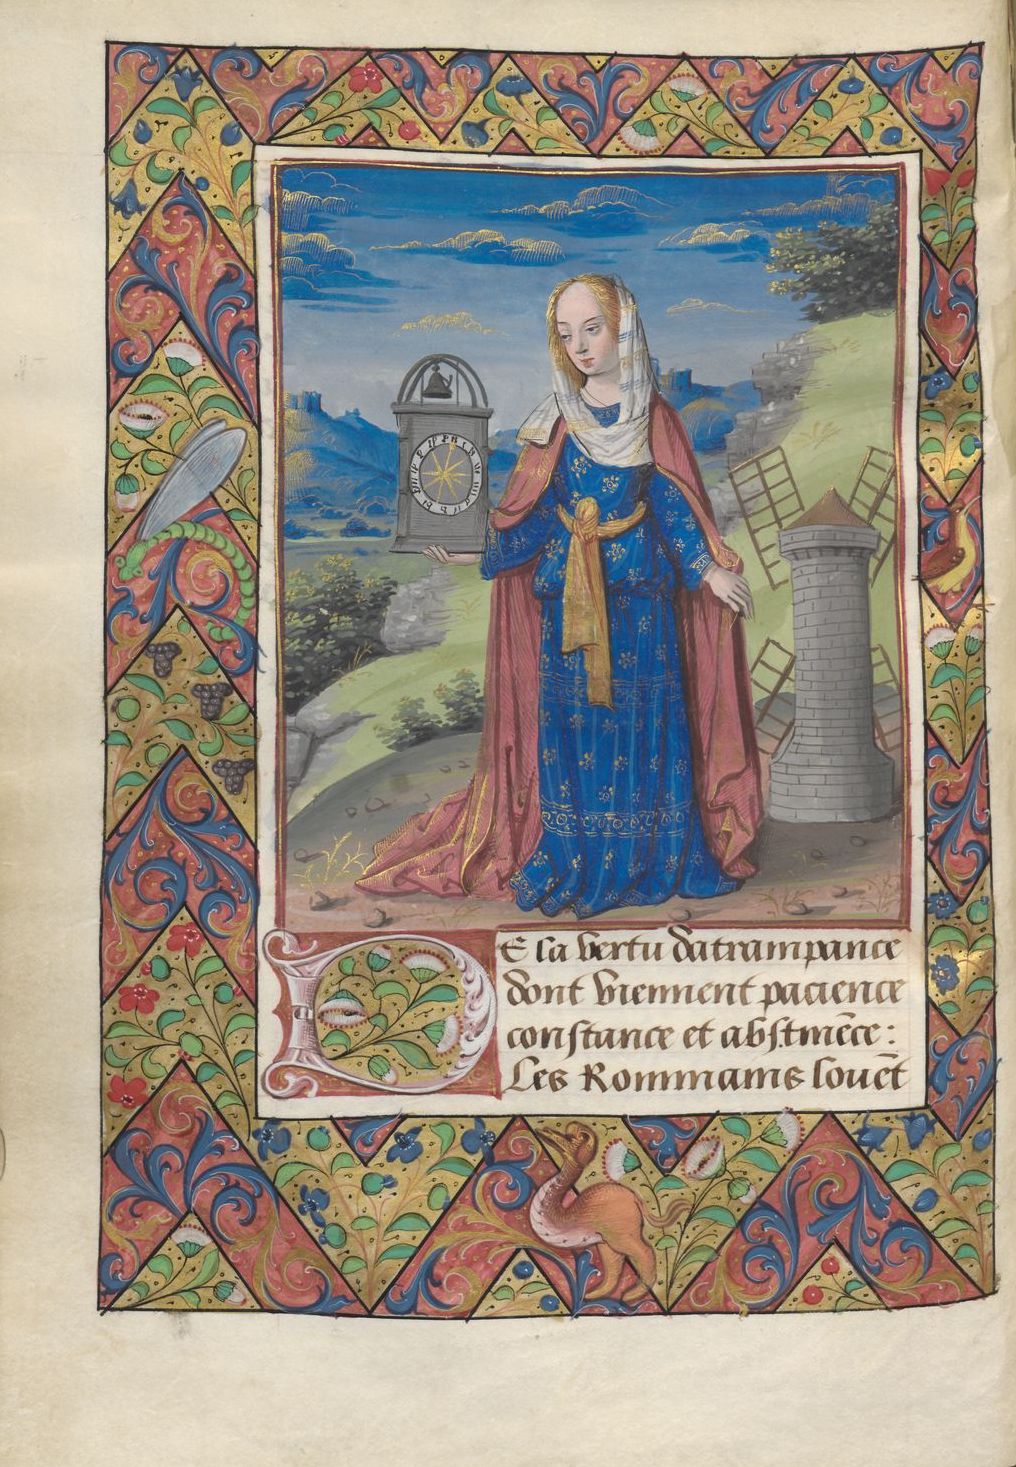 DE la vertu datrampance
dont viennent pacience
constance et abstinēce:
Les Rommains souuēt